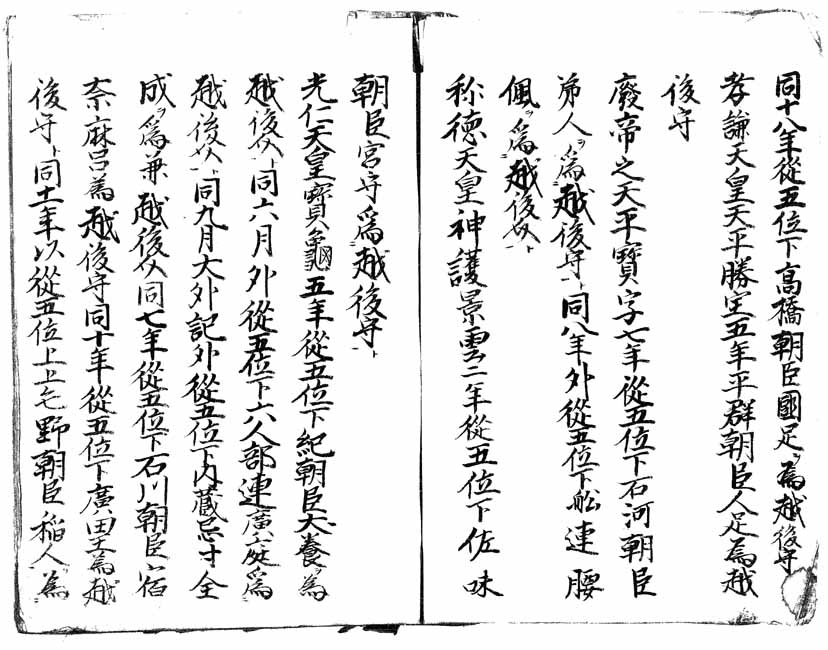 同十八年從五位下高橋朝臣國足ヲ為越後守
孝謙天皇天平勝宝五年平群朝臣人足為越
後守
廢帝之天平寶字七年從五位下石河朝臣
弟人ヲ為越後守、同八年外從五位下舩連腰
佩ヲ為越後介、
称徳天皇神護景雲二年從五位下佐味
朝臣宮守爲越後守、
光仁天皇寶龜五年從五位下紀朝臣犬養ヲ為
越後介同六月外從五位下六人部連廣庭ヲ爲
越後介、同九月大外記外從五位下内藏忌寸全
成ヲ爲兼越後介同七年從五位下石川朝臣宿
奈麻呂為越後守同十年從五位下廣田王為越
後守、同十一年以從五位上上毛野朝臣稲人ヲ為